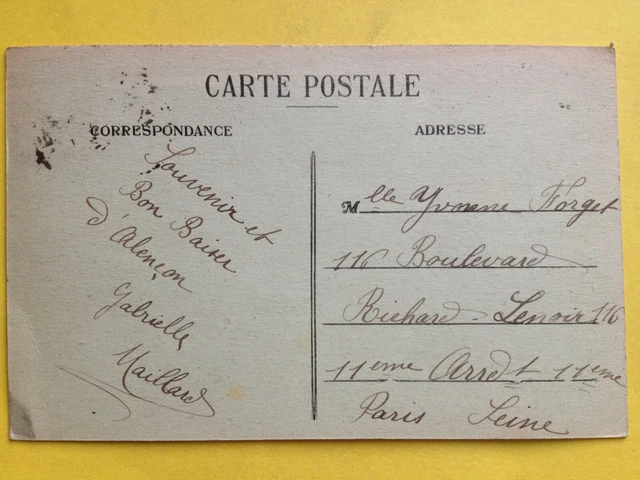 CARTE POSTALE
CORRESPONDANCE
Souvenir et
Bon Baiser
d'Alençon
Gabrielle
Maillard
ADRESSE
Mlle Yvonne Forget
116 Boulevard
Richard-Lenoir 116
11eme Arrdt 11eme
Paris Seine